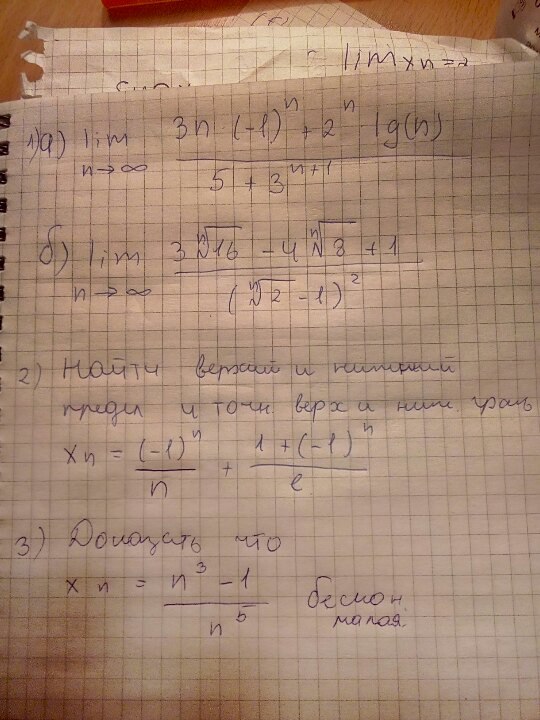 lim xn =
1) а) lim n→∞ (3n · (-1)^n + 2^n · lg(n)) / (5 + 3^(n+1))
б) lim n→∞ (3 ⁿ√16 - 4 ⁿ√8 + 1) / (ⁿ√2 - 1)^2
2) Найти верхний и нижний
предел и точн. верх и ниж. грань
xn = (-1)^n / n + (1 + (-1)^n) / e
3) Доказать что
xn = (n^3 - 1) / n^5 бескон.
малая.